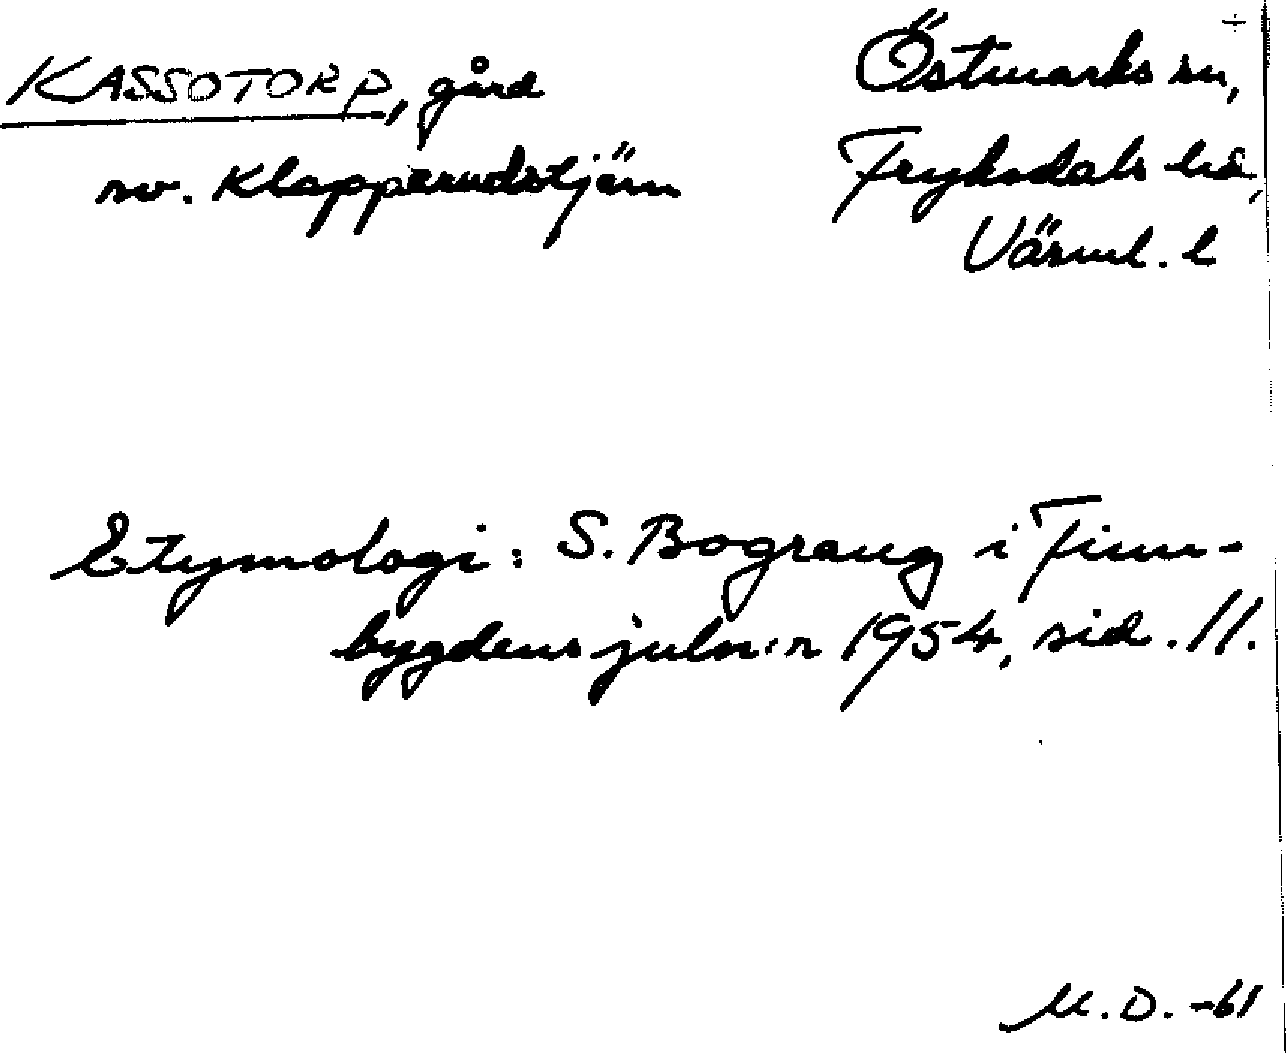 KASSOTORP, gård
nv. Klapperudstjärn
Östmarks sn,
Fryksdals hd,
Värml. l
Etymologi: S. Bograng i Finn-
bygdens juln:r 1954, sid. 11.
M.D. -61